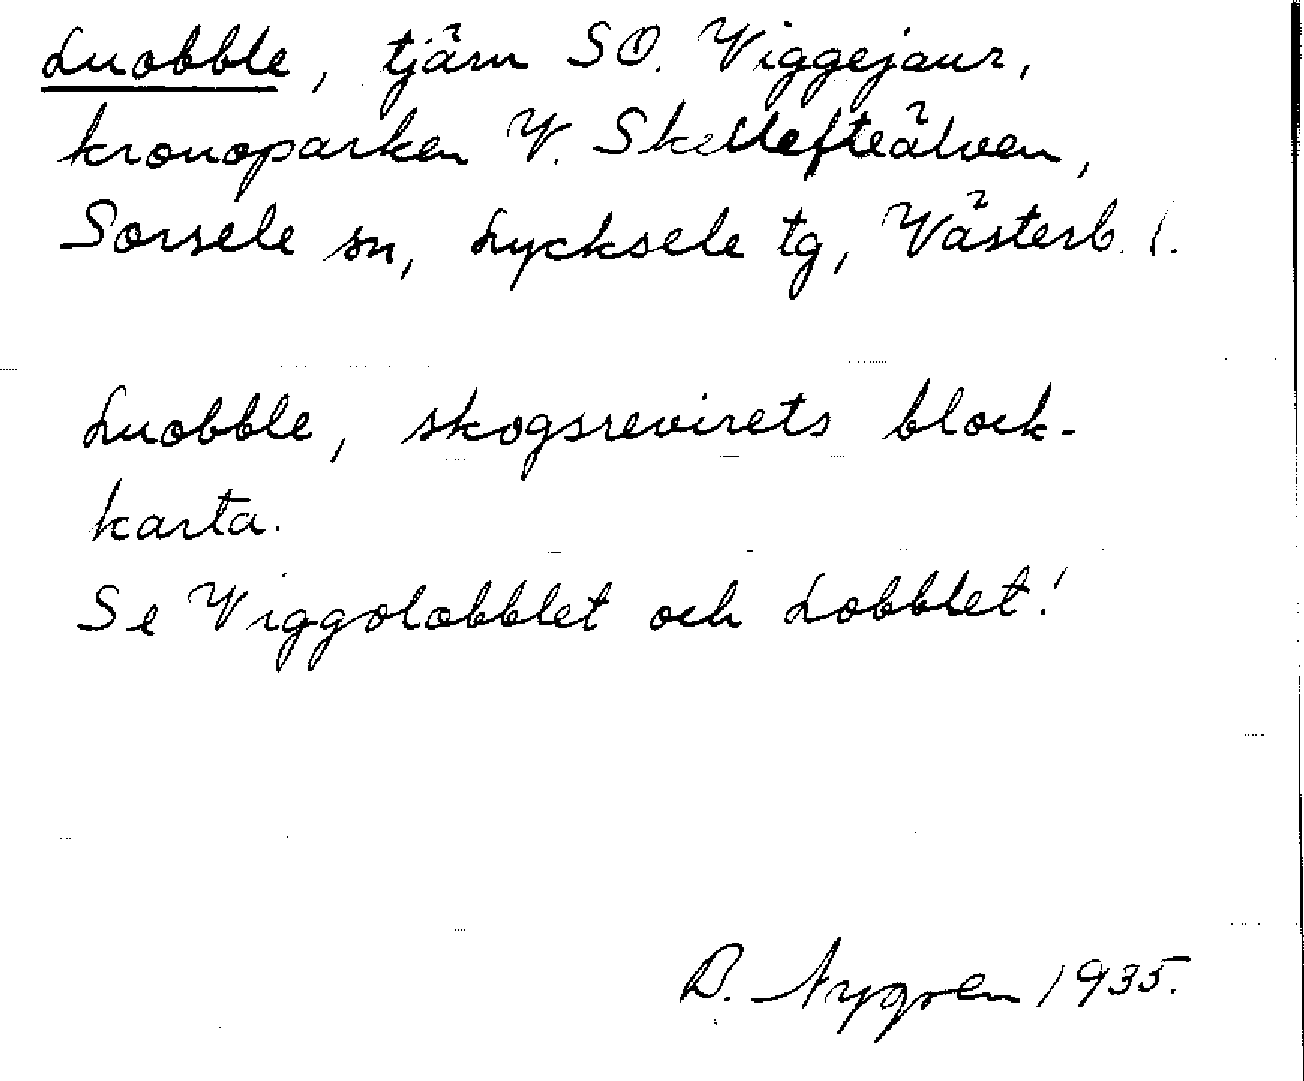 Luobble, tjärn SO. Viggejaur,
kronoparken V. Skellefteälven,
Sorsele sn, Lycksele tg, Västerb. l.
Luobble, skogsrevirets block-
karta.
Se Viggolobblet och Lobblet!
B. Nygren 1935.